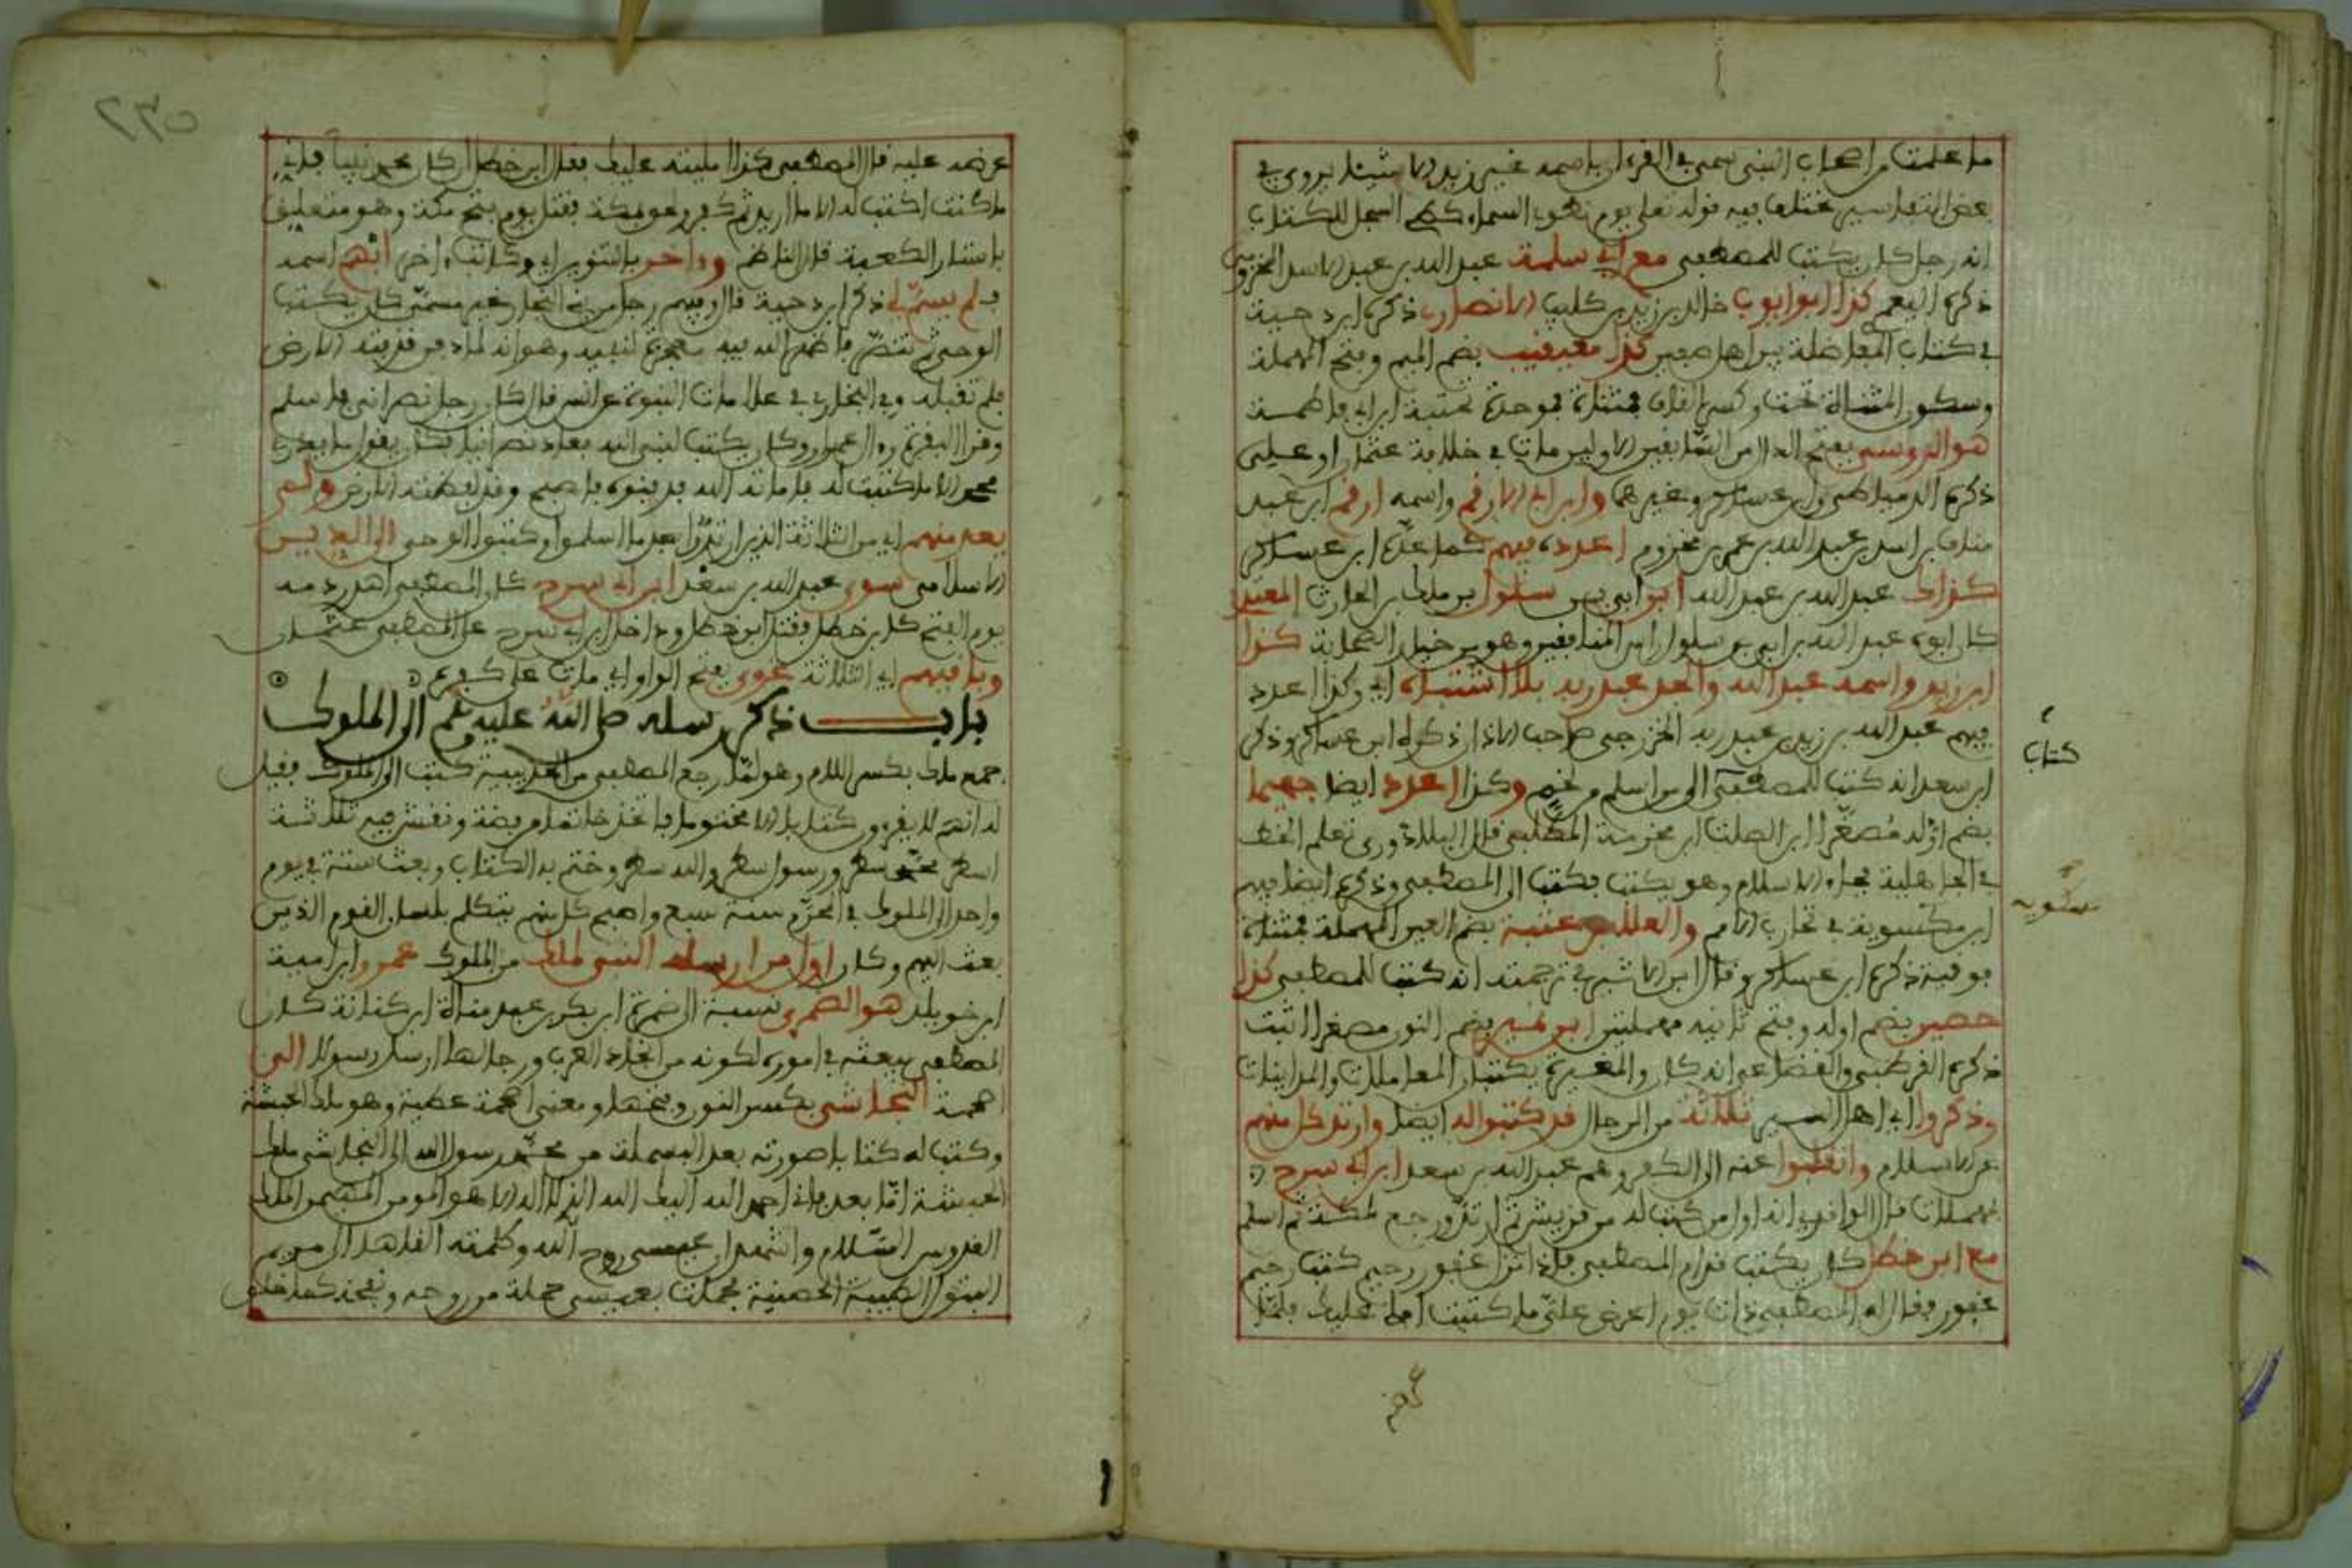 ما علمت من اصحاب النبي سمي في القرءان باسمه غير زيد الا شيئا يروى في
بعض التفاسير مختلف فيه قوله تعلى يوم نطوي السماء كطي السجل للكتاب
انه رجل كان يكتب للمصطفى مع ابي سلمة عبد الله بن عبد الاسد المخزومي
ذكره اليعمري كذا ابو ايوب خالد بن زيد بن كليب الانصاري ذكره ابن دحية
في كتاب المفاضلة بين اهل صفين كذا معيقيب بضم الميم وفتح المهملة
وسكون المثناة تحت وكسر القاف فمثناة فموحدة تحتية ابن ابي فاطمة
هو الدوسي بفتح الدال من السابقين الاولين مات في خلافة عثمان او علي
ذكره الدمياطي وابن عساكر وغيرهما وابن ابي الارقم واسمه ارقم ابن عبد
مناف بن اسد بن عبد الله بن عمر بن مخزوم اعدده فيهم كما عده ابن عساكر
كذاك عبد الله بن عبد الله ابن ابي بن سلول بن ملك بن الحارث المعيد
كان ابوه عبد الله بن ابي بن سلول راس المنافقين وهو من خيار الصحابة كذا
ابن زيد واسمه عبد الله والجد عبد ربه بلا اشتباه اي وكذا اعدد
فيهم عبد الله بن زيد بن عبد ربه الخزرجي صاحب الاذان ذكره ابن عساكر وذكر
ابن سعد انه كتب للمصطفى الى من اسلم من لخم وكذا اعدد ايضا جهيما
بضم اوله مصغرا ابن الصلت ابن مخرمة المطلبي قال البلاذوري تعلم الخط
في الجاهلية فجاء الاسلام وهو يكتب فكتب الى المصطفى وذكره ايضا فيهم
ابن مكسويه في تجارب الامم والعلا بن عتبة بضم العين المهملة فمثناة
فوقية ذكره ابن عساكر وقال ابن الاثير في ترجمته انه كتب للمصطفى كذا
حصين بضم اوله وفتح ثانيه مهملتين ابن نمير بضم النون مصغرا اثبت
ذكره القرطبي والقضاعي انه كان والمغيرة يكتبان المعاملات والمداينات
وذكروا اي اهل السير ثلاثة من الرجال قد كتبوا له ايضا وارتد كل منهم
عن الاسلام وانقلبوا عنه الى الكفر وهم عبد الله بن سعد ابن ابي سرح
بمهملات قال الواقدي انه اول من كتب له من قريش ثم ارتد ورجع لمكة ثم اسلم
مع ابن خطل كان يكتب قدام المصطفى فاذا نزل غفور رحيم كتب رحيم
غفور فقال له المصطفى ذات يوم اعرض علي ما كتبت املي عليك فلما
كتاب
مسكويه
عرضه
٢٣٥
عرضه عليه قال المصطفى كذا امليته عليك فقال ابن خطل ان كان محمد نبيا فاني
ما كنت اكتب له الا ما اريد ثم كفر ولحق بمكة فقتل يوم فتح مكة وهو متعلق
باستار الكعبة قال الناظم وءاخر بالتنوين اي وكاتب ءاخر ابهم اسمه
فلم يسم لي ذكر ابن دحية قال وفيهم رجل من بني النجار غير مسمى كان يكتب
الوحي ثم تنصر فاظهر الله فيه معجزة لنبيه وهو انه لما دفن قذفته الارض
فلم تقبله وفي البخاري في علامات النبوة عن انس قال كان رجل نصراني فاسلم
وقرا البقرة وال عمران وكان يكتب لنبي الله فعاد نصرانيا فكان يقول ما يدري
محمد الا ما كتبت له فاماته الله فدفنوه فاصبح وقد لفظته الارض ولم
يعد منهم اي من الثلاثة الذين ارتدوا بعد ما اسلموا وكتبوا الوحي الى الدين
الاسلامي سوى عبد الله بن سعد ابن ابي سرح كان المصطفى اهدر دمه
يوم الفتح كابن خطل فقتل ابن خطل ودخل ابن ابي سرح على المصطفى عثمان
وباقيهم اي الثلاثة غوى بفتح الواو اي مات على كفره
باب ذكر رسله صلى الله عليه وسلم الى الملوك
جمع ملك بكسر اللام وهو لما رجع المصطفى من الحديبية كتب الى الملوك فقيل
له انهم لا يقرءون كتابا الا مختوما فاتخذ خاتما من فضة ونقش فيه ثلاثة
اسطر محمد سطر ورسول سطر والله سطر وختم به الكتاب وبعث ستة في يوم
واحد الى الملوك في المحرم سنة سبع واصبح كل منهم يتكلم بلسان القوم الذين
بعث اليهم وكان اول من ارسله النبي لملك من الملوك عمرو ابن امية
ابن خويلد هو الضمري نسبة الى ضمرة ابن بكر بن عبد مناة ابن كنانة كان
المصطفى يبعثه في اموره لكونه من انجاد العرب ورجالها ارسل رسولا الى
اصحمة النجاشي بكسر النون وفتحها ومعنى اصحمة عطية وهو ملك الحبشة
وكتب له كتابا صورته بعد البسملة من محمد رسول الله الى النجاشي ملك
الحبشة اما بعد فاني احمد اليك الله الذي لا اله الا هو المومن المهيمن الملك
القدوس السلام واشهد ان عيسى روح الله وكلمته القاها الى مريم
البتول الطيبة الحصينة فحملت بعيسى حملته من روحه ونفخه كما خلق